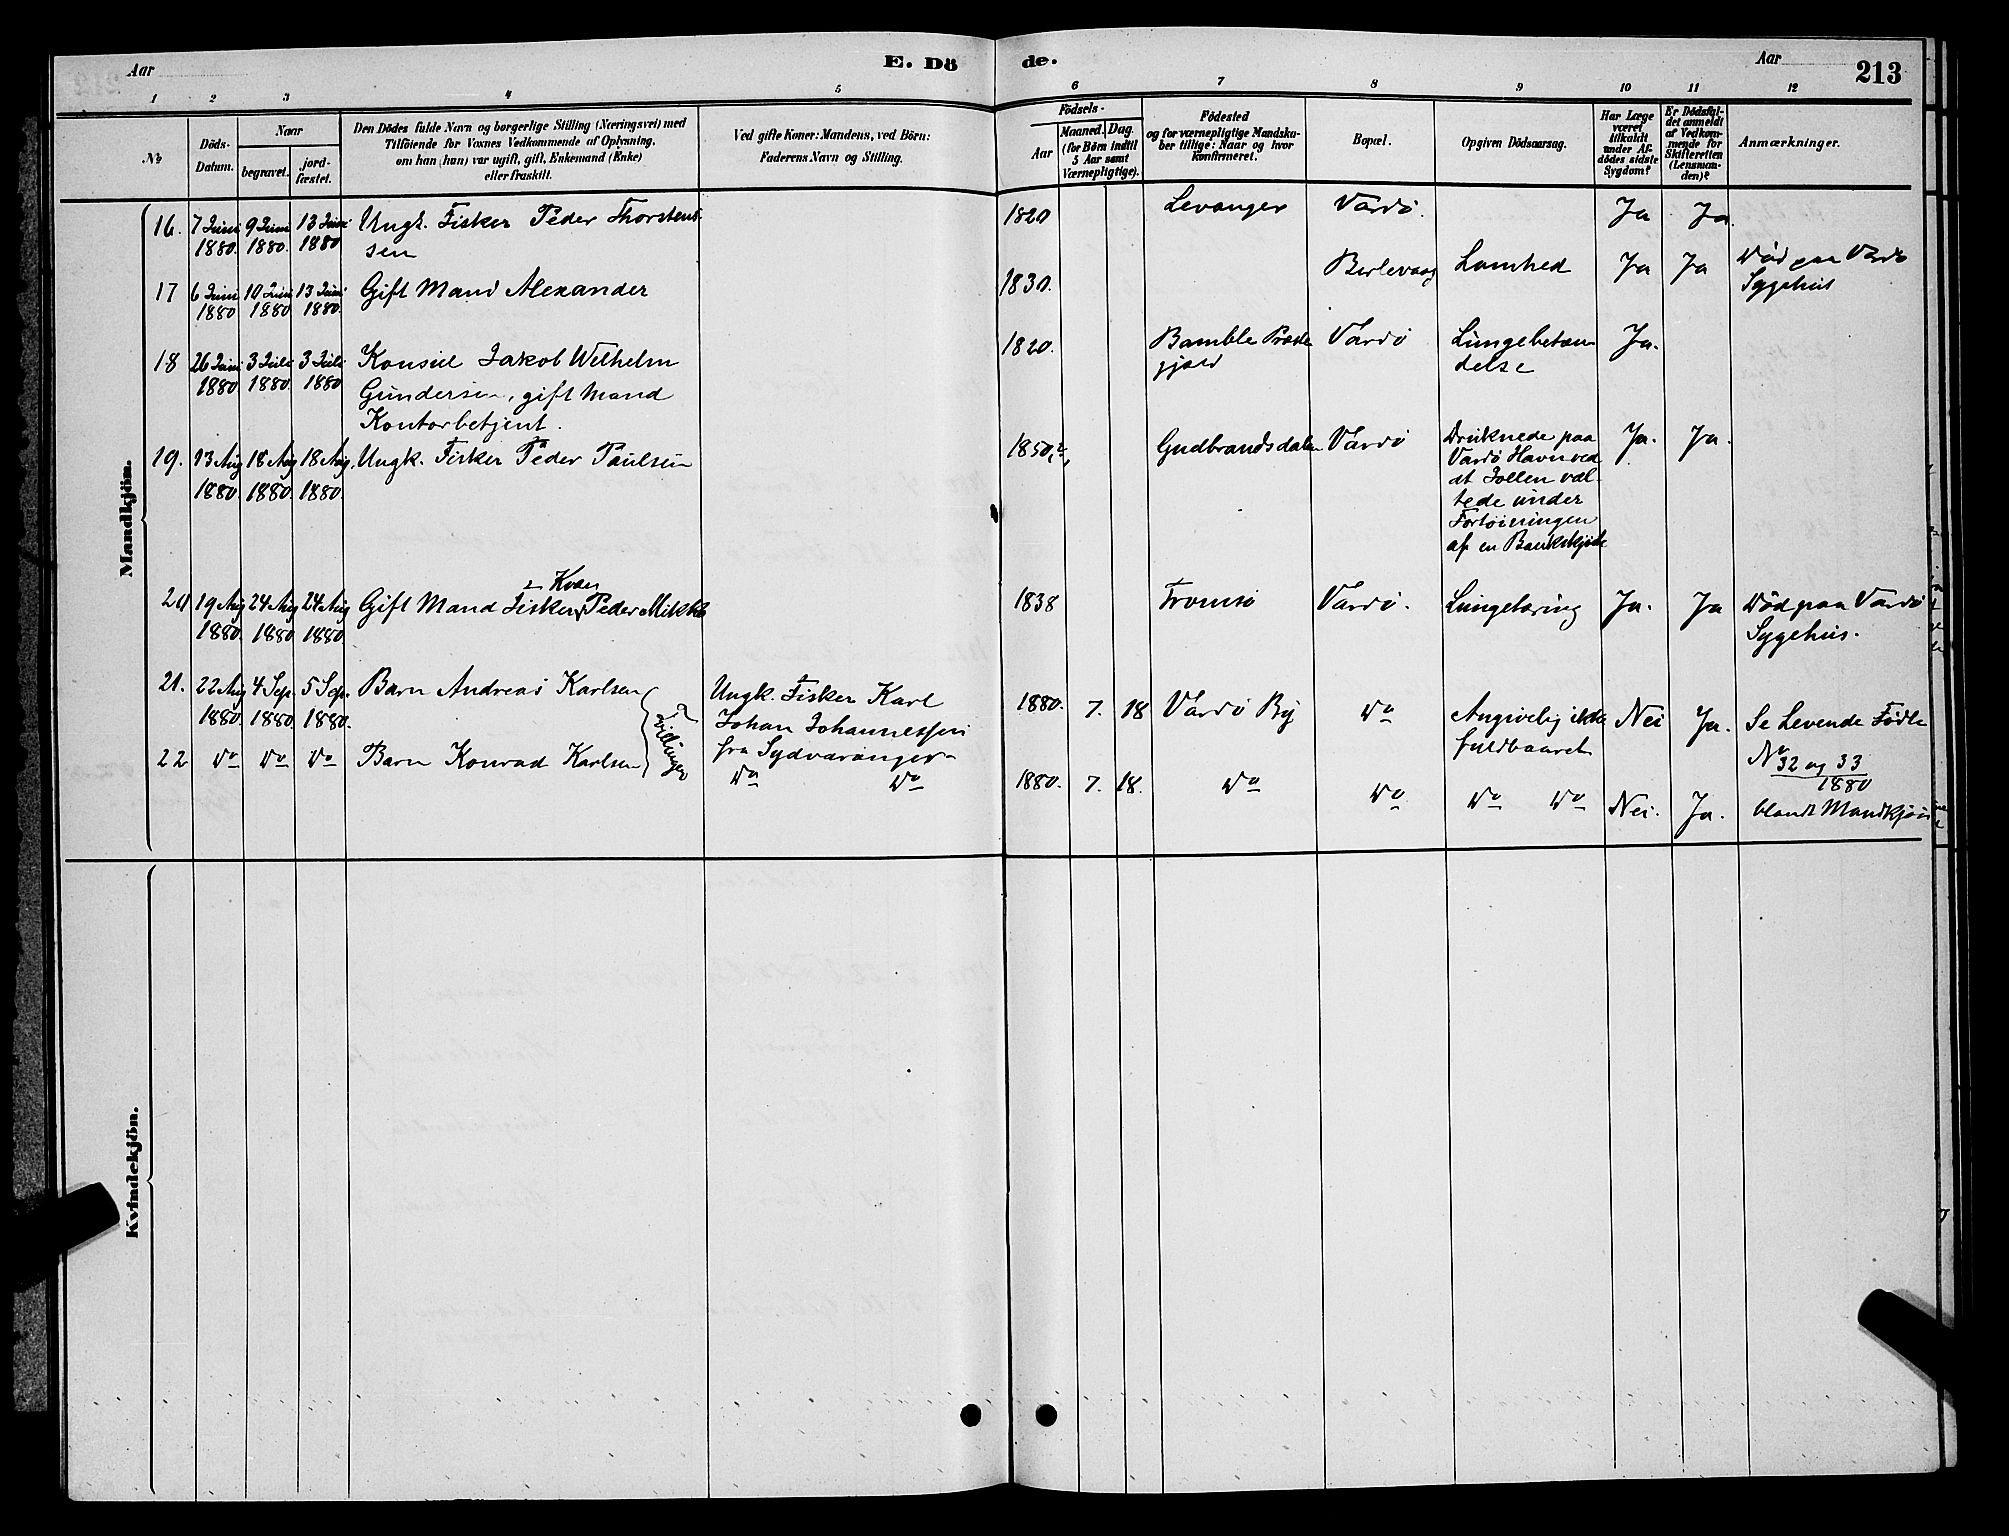 Aar
E. Dö
de.
Aar
213
1 2 3 4 5 6 7 8 9 10 11 12
№
Döds-
Datum.
Naar
begravet.
jord-
fæstet.
Den Dödes fulde Navn og borgerlige Stilling (Næringsvei) med
Tilföiende for Voxnes Vedkommende af Oplysning,
om han (hun) var ugift, gift, Enkemand (Enke)
eller fraskilt.
Ved gifte Koner: Mandens, ved Börn:
Faderens Navn og Stilling.
Födsels-
Aar
Maaned.
Dag.
(for Börn indtil
5 Aar samt
Værnepligtige).
Födested
og for værnepligtige Mandska-
ber tillige: Naar og hvor
konfirmeret.
Bopæl.
Opgiven Dödsaarsag.
Har Læge
været
tilkaldt
under Af-
dödes sidste
Sygdom?
Er Dödsfal-
det anmeldt
af Vedkom-
mende for
Skifteretten
(Lensman-
den)?
Anmærkninger.
Mandkjön.
16. 7 Juni 9 Juni 13 Juni Ungk. Fisker Peder Thorstens- 1820 Levanger Vardö. Ja Ja.
1880. 1880. 1880 sen
17 6 Juni 10 Juni 13 Juni Gift Mand Alexander 1830. Berlevaag Lamhed Ja Ja Död paa Vardö
1880 1880 1880. Sygehus
18 26 Juni 3 Juli 3 Juli Konsul Jakob Wilhelm 1820. Bamble Præste Vardö Lungebetæn Ja.
1880 1880. 1880 Gundersen, gift Mand gjæld delse
Kontorbetjent.
19. 13 Aug 18 Aug 18 Aug. Ungk. Fisker Peder Paulsen 1850, Gudbrandsdalen Vardö Druknede paa Ja. Ja.
1880. 1880. 1880. Vardö Havn ved
at Jollen væl-
tede under
Fortöiningen
af en Bankskjöite
Kvæn
20 19 Aug 24 Aug 24 Aug Gift Mand Fisker Peder Mikkel 1838 Tromsö Vardö. Lungetæring Ja. Ja Död paa Vardö
1880. 1880 1880. Sygehus.
21. 22 Aug 4 Sep. 5 Sep. Barn Andreas Karlsen Ungk. Fisker Karl 1880. 7. 18 Vardö By Do Angivelig ikke Nei Ja. Se Levende Födte
1880. 1880. 1880. Johan Johannessen fuldbaaret No 32 og 33
fra Sydvaranger 1880
Tvillinger
22 Do Do Do Barn Konrad Karlsen Do Do 1880. 7. 18. Do Do Do Do Nei. Ja. blandt Mandkjön
Kvindekjön.